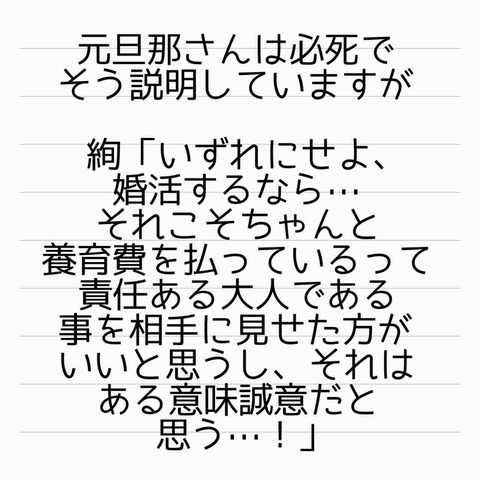 元旦那さんは必死で
そう説明していますが
絢「いずれにせよ、
婚活するなら…
それこそちゃんと
養育費を払っているって
責任ある大人である
事を相手に見せた方が
いいと思うし、それは
ある意味誠意だと
思う…！」